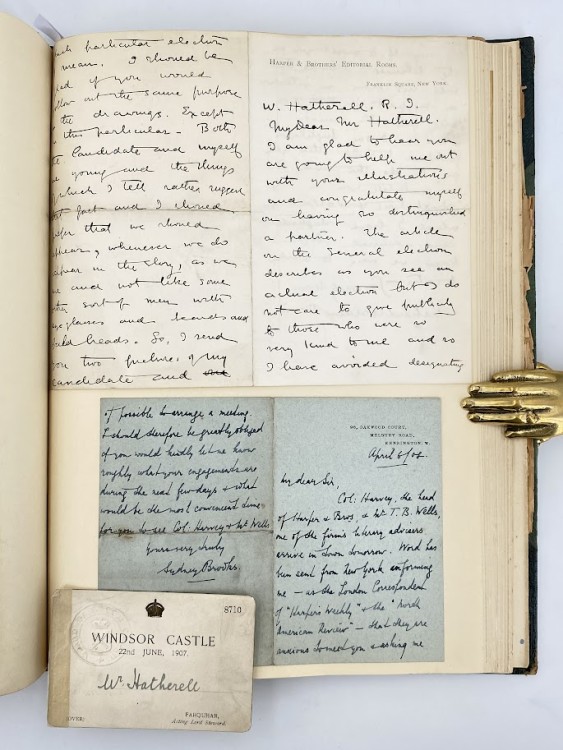 particular election
mean. I should be
if you would
out the same purpose
the drawings. Except
this particular - Both
the Candidate and myself
young and the things
which I tell rather suggest
fact and I should
that we should
appear, whenever we do
appear in the story, as we
and not like some
sort of men with
glasses and beards and
bald heads. So, I send
you two pictures of my
candidate and
HARPER & BROTHERS' EDITORIAL ROOMS.
FRANKLIN SQUARE, NEW YORK.
W. Hatherall. R. I.
My Dear Mr Hatherell.
I am glad to hear you
are going to help me out
with your illustrations
and congratulate myself
on having so distinguished
a partner. The article
on the General election
describes as you see an
actual election but I do
not care to give publicity
to those who were so
very kind to me and so
I have avoided designating
if possible to arrange a meeting.
I should therefore be greatly obliged
if you would kindly let me know
roughly what your engagements are
during the next few days & what
would be the most convenient time
for you to see Col: Harvey & Mr Wells
Yours very truly
Sydney Brooks.
OAKWOOD COURT,
MELBURY ROAD,
KENSINGTON, W.
April 6/04
My dear Sir,
Col: Harvey, the head
of Harper & Bros, & Mr T. B. Wells,
one of the firm's literary advisers
arrive in town tomorrow. Word has
been sent from New York informing
me — as the London Correspondent
of "Harper's Weekly" & the "North
American Review" — that they are
anxious to meet you & asking me
8710
WINDSOR CASTLE
22nd JUNE, 1907.
Mr Hatherell
FARQUHAR,
Acting Lord Steward.